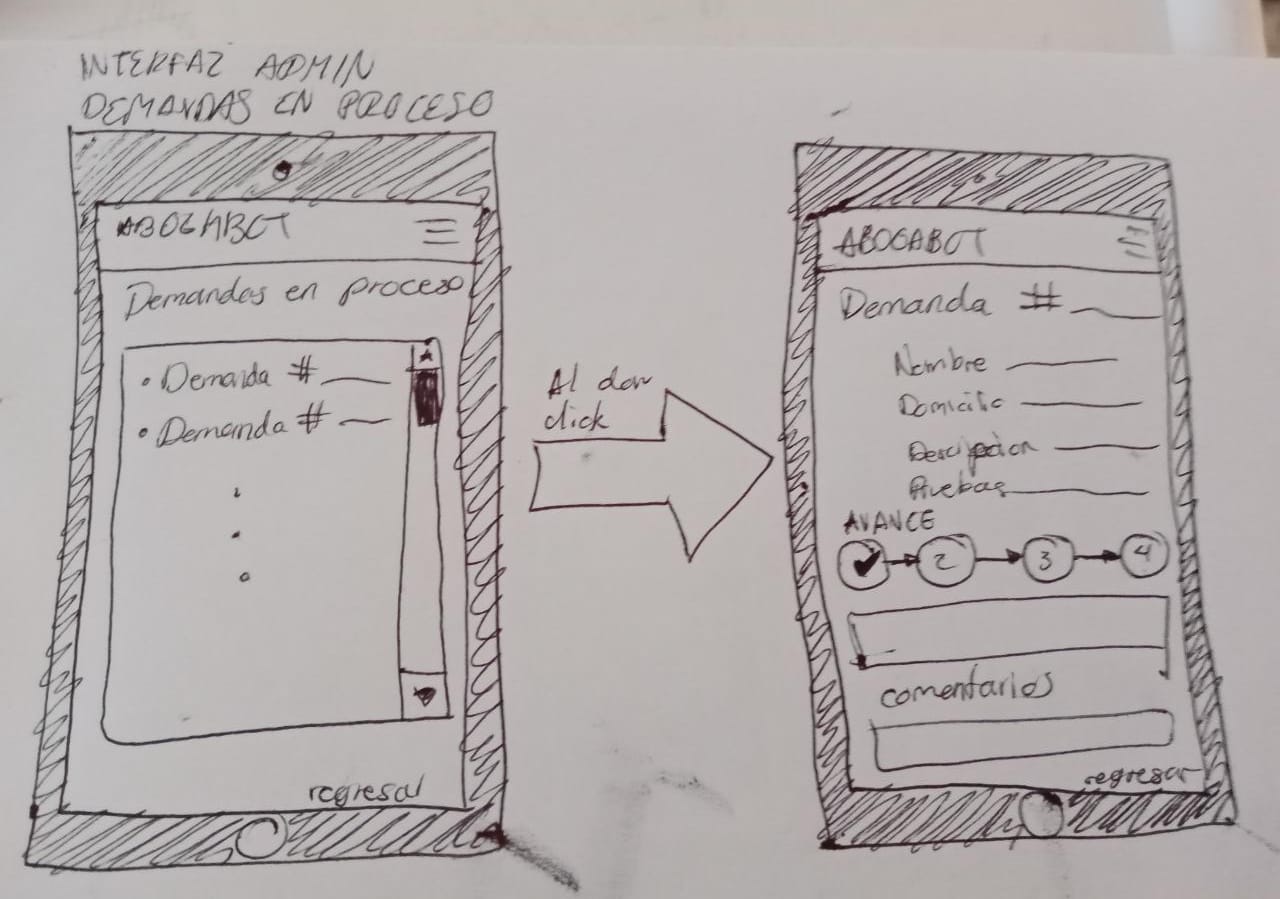 INTERFAZ ADMIN
DEMANDAS EN PROCESO
ABOGABOT
Demandas en proceso
• Demanda #
• Demanda #
regresar
Al dar
click
ABOGABOT
Demanda #
Nombre
Domicilio
Descripcion
Pruebas
AVANCE
2 3 4
comentarios
regresar